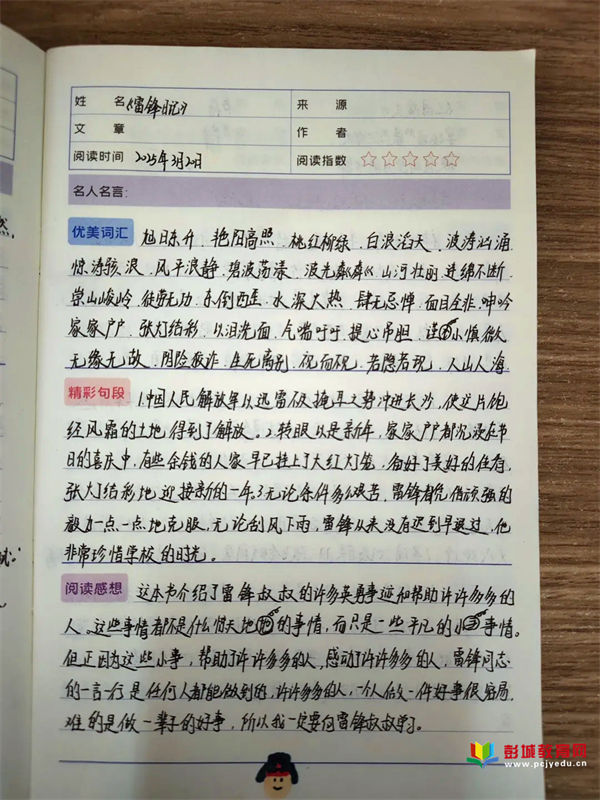 姓 名 《雷锋日记》 来 源
文 章 作 者
阅读时间 2025年3月2日 阅读指数 ☆☆☆☆☆
名人名言:
优美词汇 旭日东升、艳阳高照、桃红柳绿、白浪滔天、波涛汹涌
惊涛骇浪、风平浪静、碧波荡漾、波光粼粼、山河壮丽 连绵不断
崇山峻岭、徒劳无功、东倒西歪、水深火热、肆无忌惮、面目全非、呻吟
家家户户、张灯结彩、以泪洗面、气喘吁吁、提心吊胆、谨小慎微
无缘无故、阴险狡诈、生死离别、视而不见、若隐若现、人山人海
精彩句段 1.中国人民解放军以迅雷不及掩耳之势冲进长沙,使这片饱
经风霜的土地得到了解放。2.转眼以是新年,家家户户都沉浸在节
日的喜庆中,有些余钱的人家早已挂上了大红灯笼,备好了美好的佳肴,
张灯结彩地迎接新的一年.3.无论条件多么艰苦,雷锋都凭借顽强的
毅力一点一点地克服,无论刮风下雨,雷锋从来没有迟到早退过,他
非常珍惜学校的时光。
阅读感想 这本书介绍了雷锋叔叔的许多英勇事迹和帮助许许多多的
人。这些事情都不是什么惊天地的事情,而只是一些平凡的小事情。
但正因为这些小事,帮助了许许多多的人,感动了许许多多的人,雷锋同志
的一言一行是任何人都能做到的,许许多多的人,一个人做一件好事很容易,
难的是做一辈子的好事,所以我一定要向雷锋叔叔学习。
彭城教育网
www.pcjyedu.cn